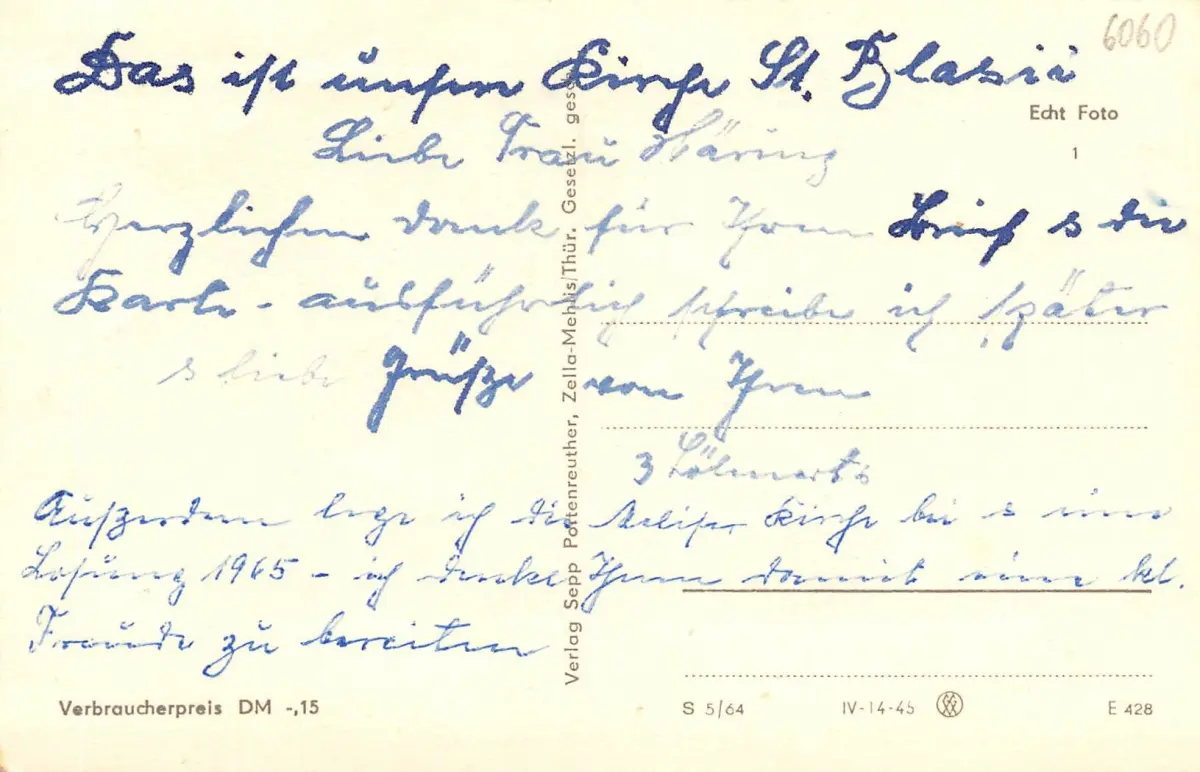 6060
Das ist unsere Kirche St. Blasii
Echt Foto
Liebe Frau Häring
1
Herzlichen Dank für Ihren Brief & die
Karte - ausführlich schreibe ich später
& liebe Grüße von Ihren
3
Außerdem lege ich die Kirche bei & eine
Losung 1965 - ich denke Ihnen damit eine kl.
Freude zu bereiten
Verlag Sepp Portenreuther, Zella-Mehlis/Thür. Gesetzl. gesch.
Verbraucherpreis DM -,15
S 5/64
IV-14-45
E 428